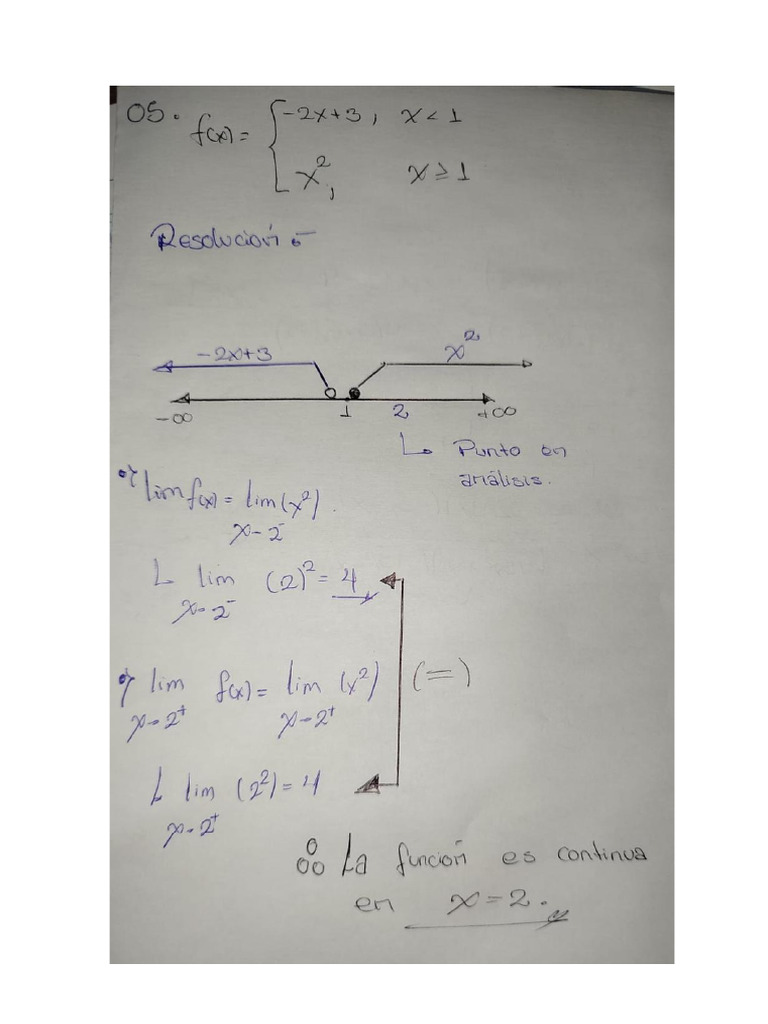 05. f(x) = { -2x+3, x < 1
x², x ⩾ 1
Resolución:-
-2x+3 x²
-∞ 1 2 +∞
↳ Punto en
análisis.
*) lim f(x) = lim (x²).
x→2⁻
L lim (2)² = 4
x→2⁻
*) lim f(x) = lim (x²) (=)
x→2⁺ x→2⁺
L lim (2²) = 4
x→2⁺
∴ La función es continua
en x = 2.